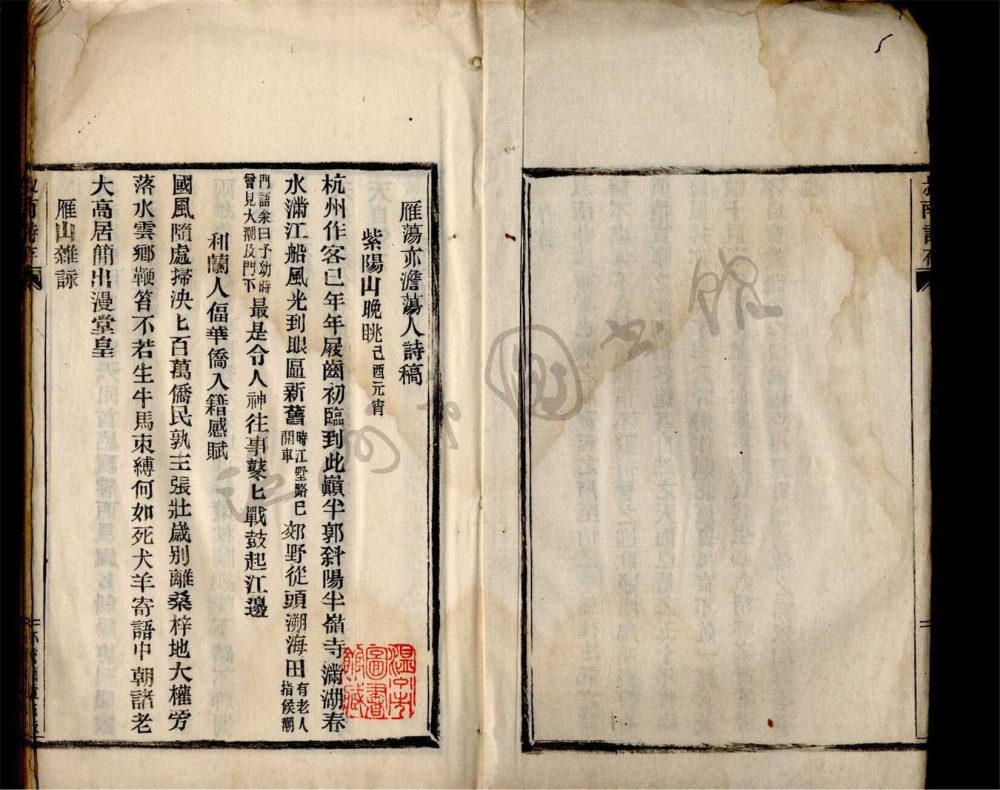 雁蕩亦澹蕩人詩稿
紫陽山晚眺己酉元宵
杭州作客已年年屐齒初臨到此巔半郭斜陽半嶺寺滿湖春
水滿江船風光到眼區新舊時江墅路已開車郊野從頭溯海田有老人指候潮
門語余曰予幼時曾見大潮及門下最是令人神往事鼕匕戰鼓起江邊
和蘭人偪華僑入籍感賦
國風隨處掃泱匕百萬僑民孰主張壯歲別離桑梓地大權旁
落水雲鄉鞭笞不若生牛馬束縛何如死犬羊寄語中朝諸老
大高居簡出漫堂皇
雁山雜詠
溫州市圖書館藏
溫州市圖書館
5